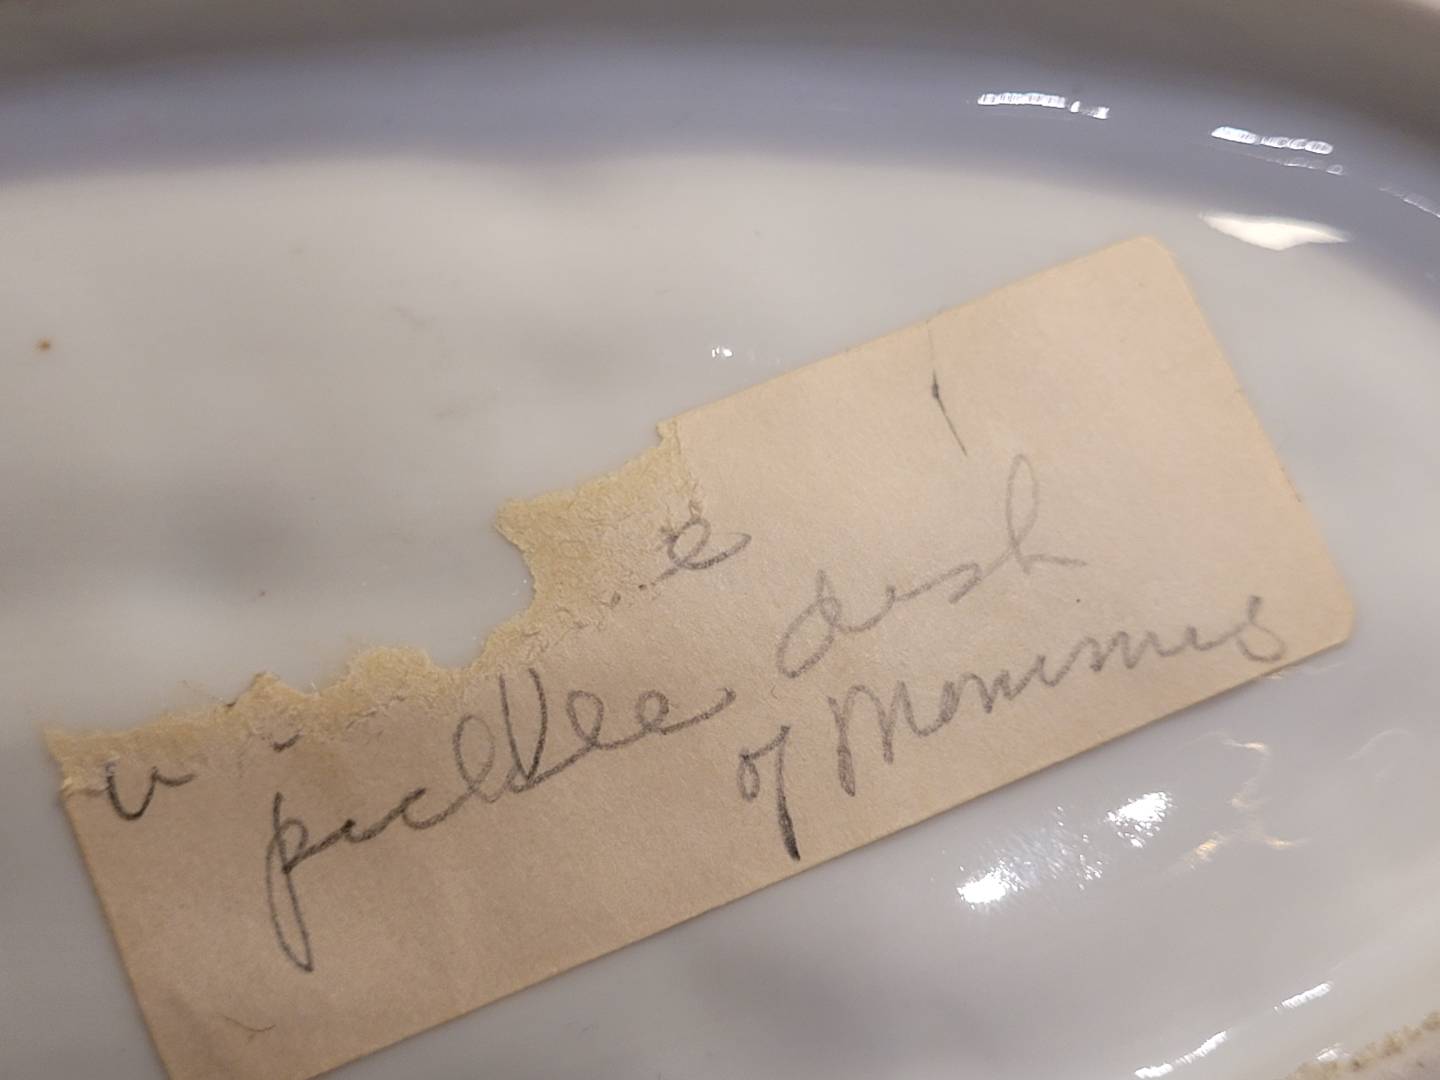 pickle dish
of Mommies